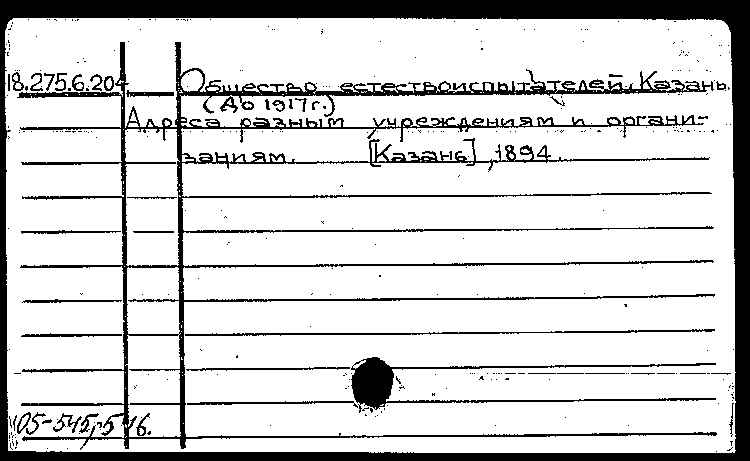 18.275.6.204 Общество естествоиспытателей. Казань.
(До 1917 г.)
Адреса разным учреждениям и органи-
зациям. [Казань], 1894.